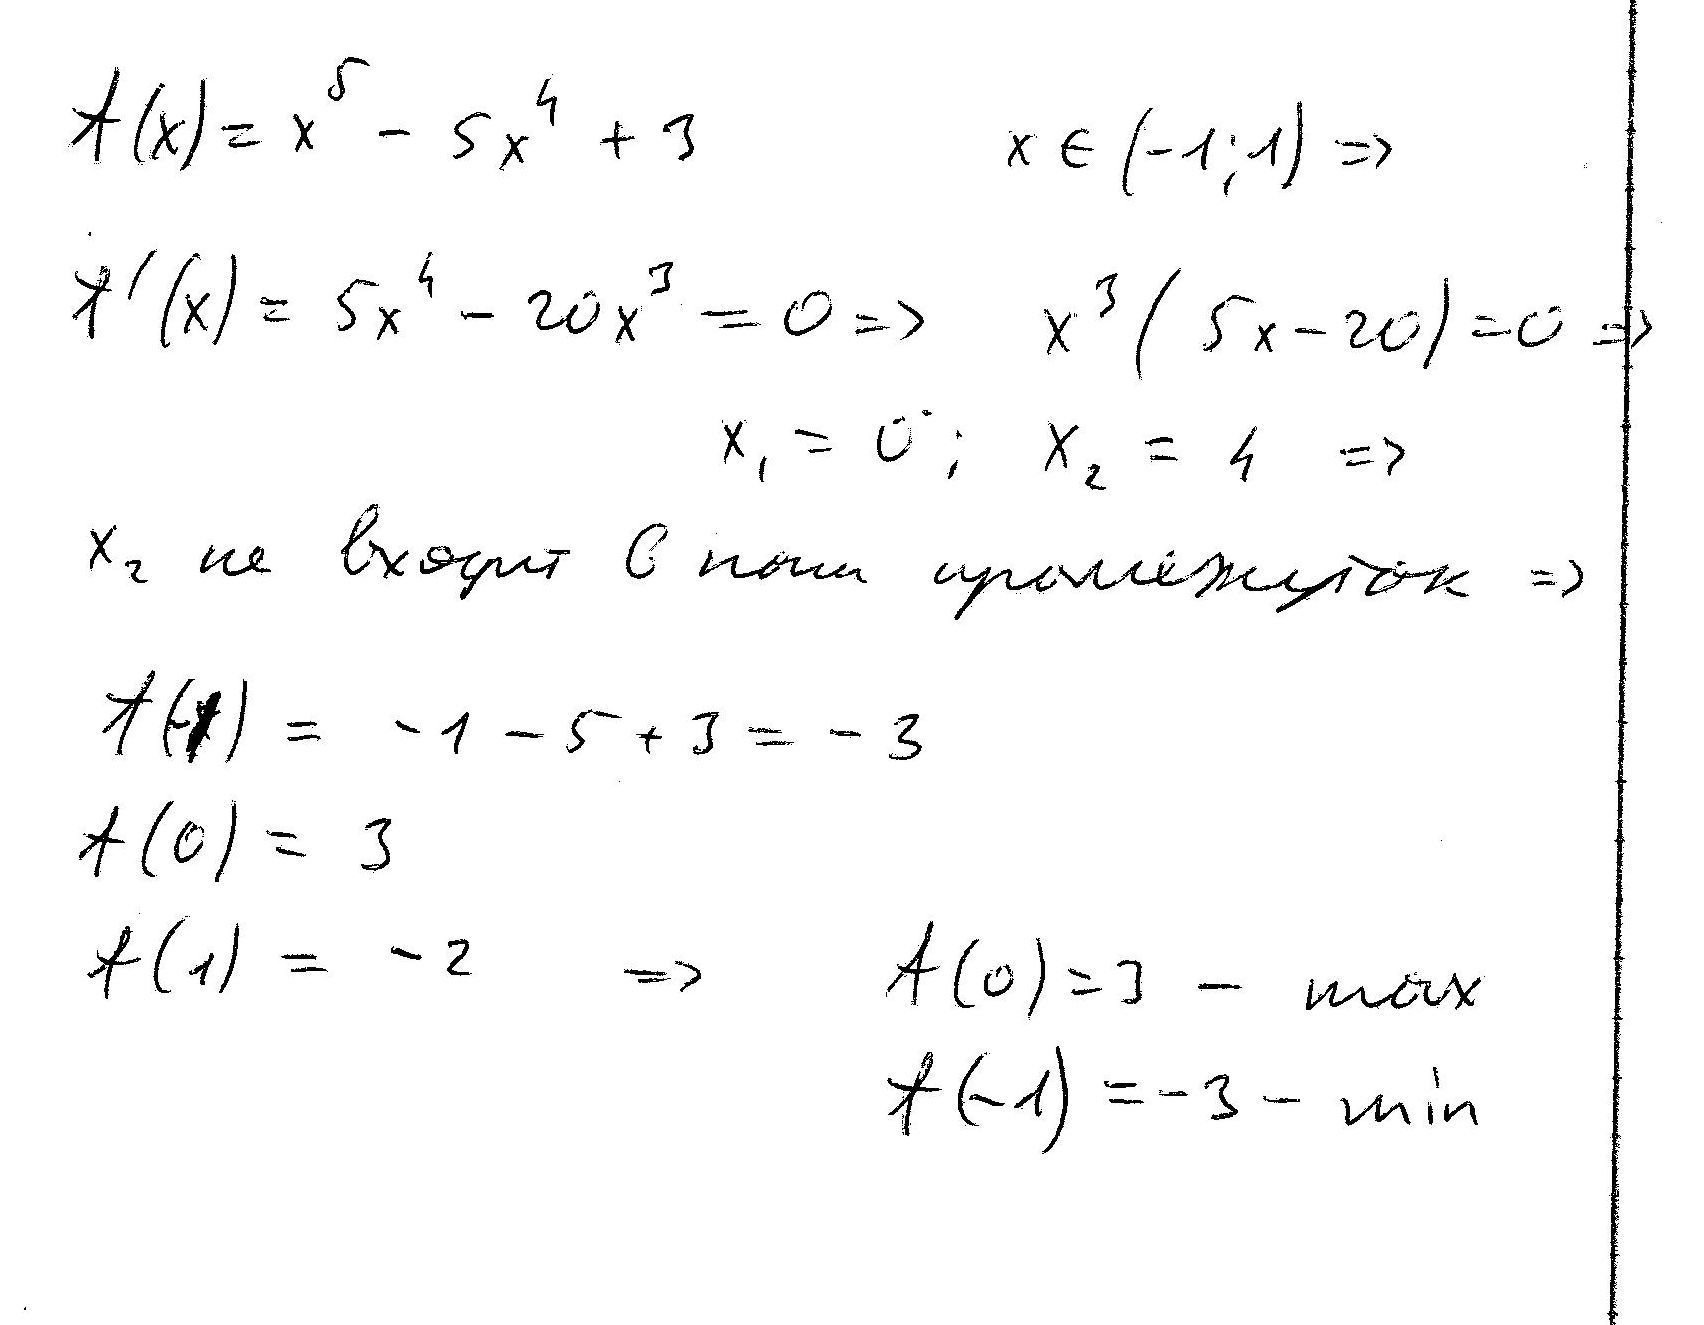 f(x) = x⁵ - 5x⁴ + 3 x ∈ (-1; 1) =>
f'(x) = 5x⁴ - 20x³ = 0 => x³(5x - 20) = 0 =>
x₁ = 0; x₂ = 4 =>
x₂ не входит в наш промежуток =>
f(-1) = -1 - 5 + 3 = -3
f(0) = 3
f(1) = -2 => f(0) = 3 - max
f(-1) = -3 - min